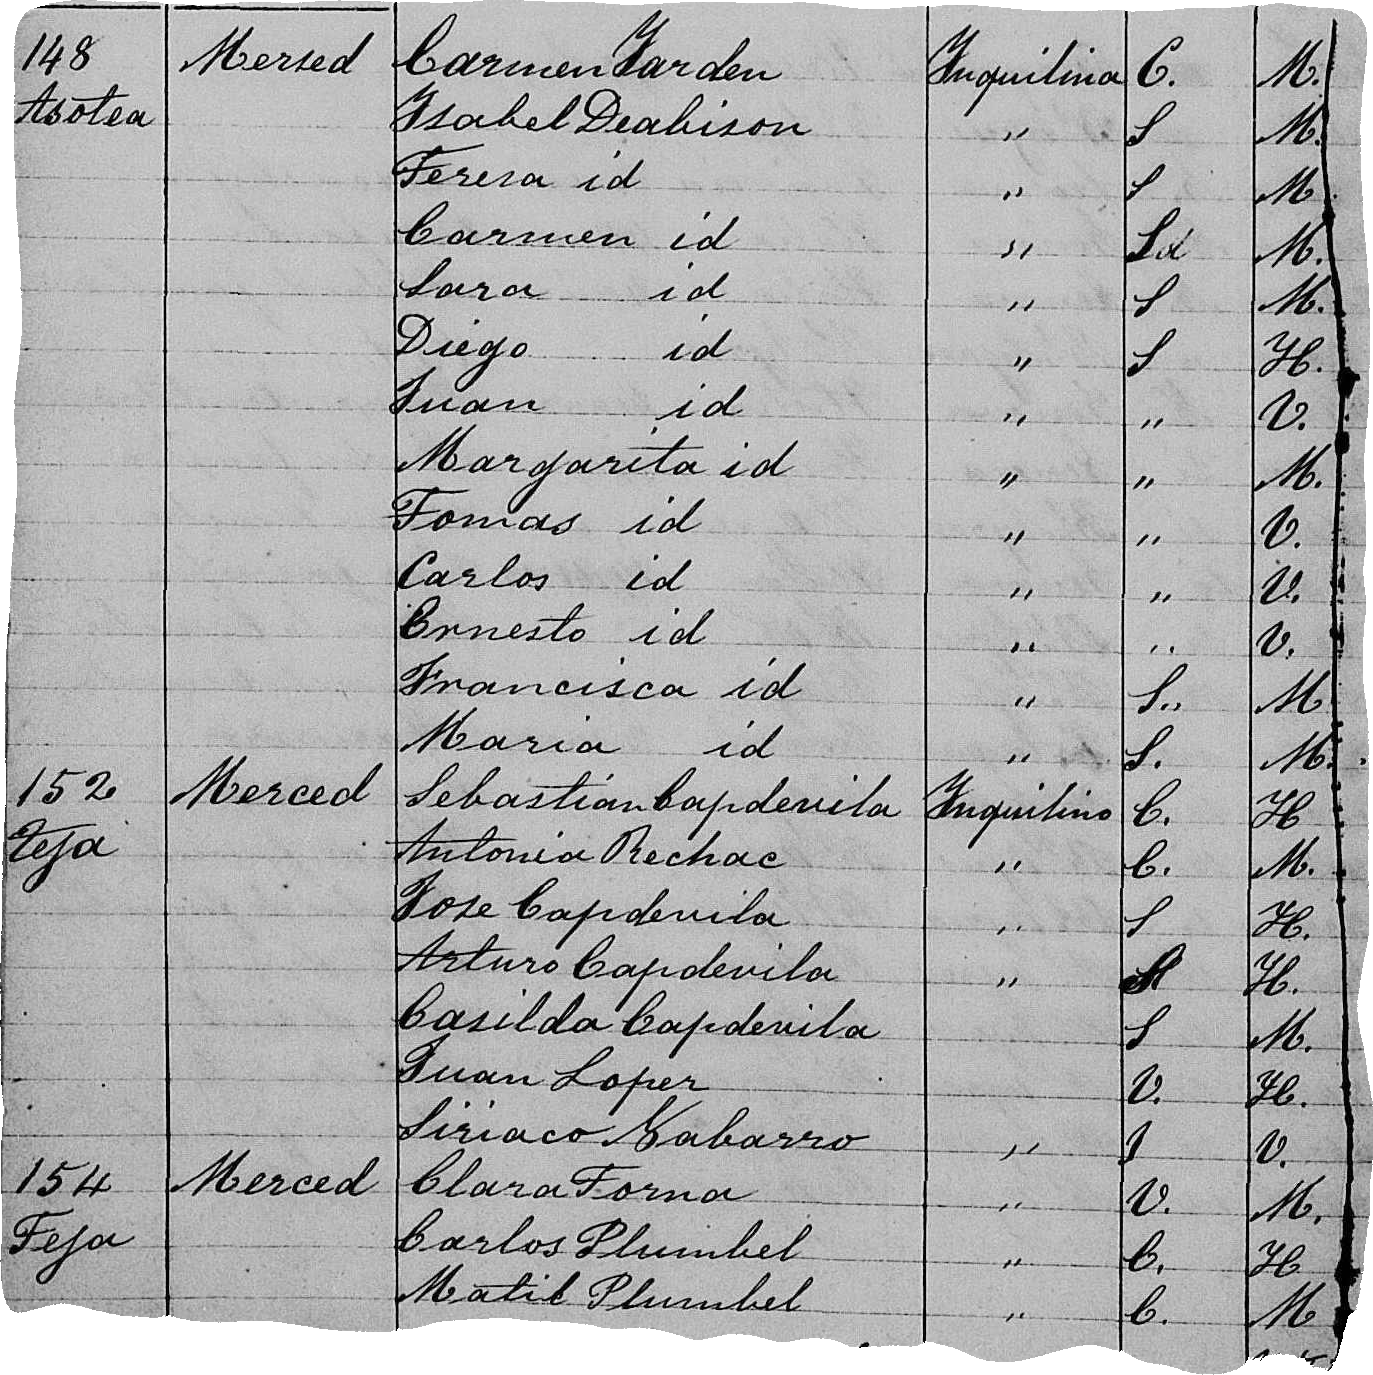 148 Mersed Carmen Jarden Inquilina C. M.
Asotea Isabel Deabison " S M.
Teresa id " S M.
Carmen id " Sd M.
Sara id " S M.
Diego id " S H.
Juan id " " V.
Margarita id " " M.
Tomas id " " V.
Carlos id " " V.
Ernesto id " " V.
Francisca id " S. M
Maria id " S. M.
152 Merced Sebastian Capdevila Inquilino C. H
teja Antonia Rechac " C. M.
Jose Capdevila " S H.
Arturo Capdevila " H.
Casilda Capdevila S M.
Juan Loper V. H.
Siriaco Nabarro " S V.
154 Merced Clara Torna " V. M.
Teja Carlos Plumbel " C. H
Matil Plumbel " C. M